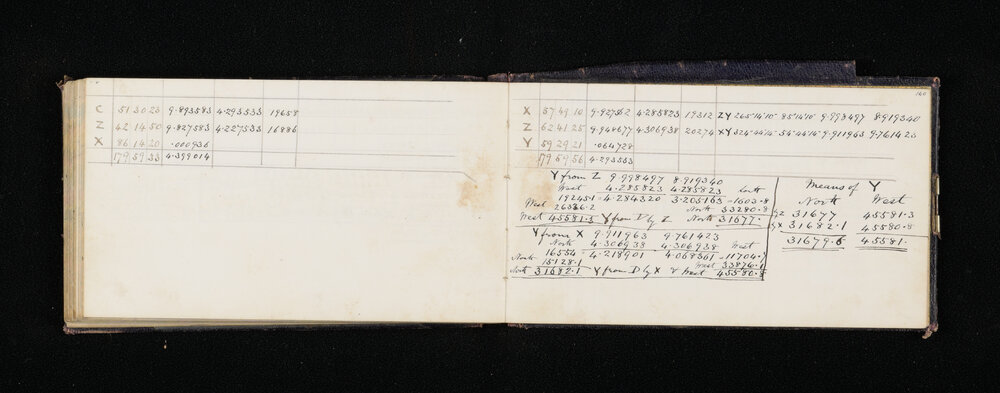 C 51 30 23 9.893583 4.293533 19658
Z 42 14 50 9.827583 4.227533 16886
X 86 14 20 .000936
179 59 33 4.399014
160
X 57 49 10 9.927562 4.285823 19312 ZY 265 14 10 85 14 10 9.998497 8.919340
Z 62 41 25 9.948677 4.306938 20274 XY 324 44 14 54 44 14 9.911963 9.761423
Y 59 29 21 .064728
179 59 56 4.293533
Y from Z 9.998497 8.919340
West 4.285823 4.285823 South
19245.1 = 4.284320 3.205163 = 1603.8
West 26336.2 North 33280.8
West 45581.3 Y from D by Z North 31677.
Y from X 9.911963 9.761423
North 4.306938 4.306938 West
North 16554 = 4.218901 4.068361 = 11704.7
15128.1 West 33876.1
North 31682.1 Y from D by X & West 45580.8
Means of Y
North West
by Z 31677 45581.3
by X 31682.1 45580.8
31679.6 45581.